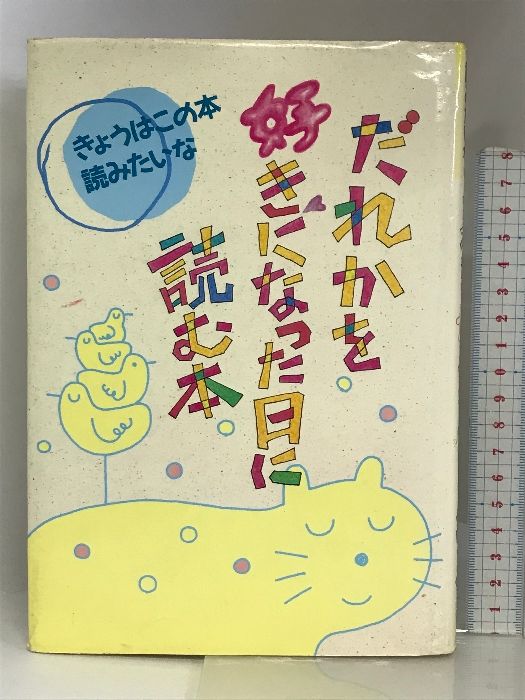 きょうはこの本
読みたいな
だれかを
好きになった日に
読む本
1 2 3 4 5 6 7 8 9 1 2 3 4 5 6 7 8